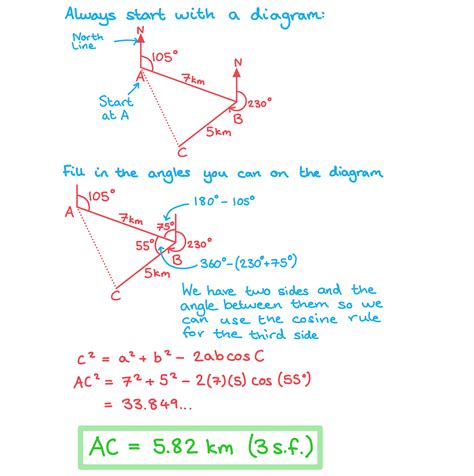 Always start with a diagram:
North
Line
N
105°
A
7km
N
Start
at A
230°
B
5km
C
Fill in the angles you can on the diagram
105°
180° - 105°
A
7km
75°
55°
230°
B
360°-(230°+75°)
5km
C
We have two sides and the
angle between them so we
can use the cosine rule
for the third side
c² = a² + b² - 2abcosC
AC² = 7² + 5² - 2(7)(5) cos (55°)
= 33.849...
AC = 5.82 km (3 s.f.)